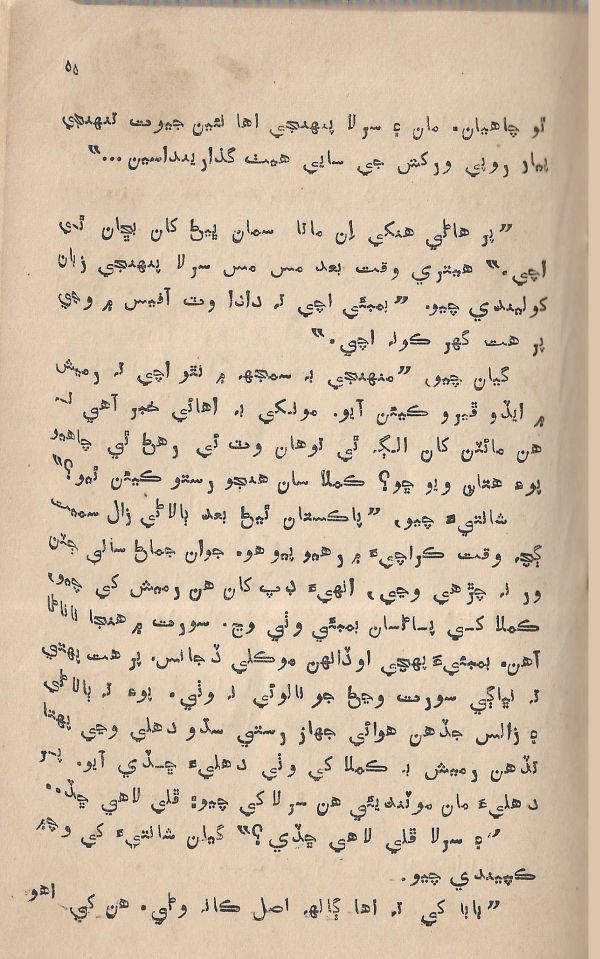 ۵۵
ٿو چاهيان. مان ۽ سرلا پنهنجي اها نئين جيوت تنهنجي
پيار روپي ورکش جي سايي هيٺ گذارينداسين..."
"پر هاڻي هنکي اِن ماتا سمان ڀيڻ کان بڇان ٿي
اچي." هيتري وقت بعد مس مس سرلا پنهنجي زبان
کوليندي چيو. "بمبئي اچي ته دادا وٽ آفيس ۾ وڃي
پر هت گهر ڪونه اچي."
گيان چيو، "منهنجي به سمجھ ۾ نٿو اچي ته رميش
۾ ايڏو ڦيرو ڪيئن آيو. مونکي به اهائي خبر آهي ته
هن مائٽن کان الڳ ٿي توهان وٽ ئي رهڻ ٿي چاهيو
پوءِ هتان ويو ڇو؟ ڪملا سان هنجو رستو ڪيئن ٿيو؟"
شانتيءَ چيو، "پاڪستان ٿيڻ بعد ٻالاڻي زال سميت
ڳچ وقت ڪراچيءَ ۾ رهيو پيو هو. جوان جماڻ سالي جٽن
ور نه چڙهي وڃي، انهيءَ ڊپ کان هن رميش کي چيو،
ڪملا کي پاڻسان بمبئي وٺي وڃ. سورت ۾ هنجا ناناڻا
آهن. بمبئيءَ پهچي اوڏانهن موڪلي ڏجانس. پر هت پهتي
ته نڀاڳي سورت وڃڻ جو نالوئي نه وٺي. پوءِ ته ٻالاڻي
۽ زالس جڏهن هوائي جهاز رستي سڌو دهلي وڃي پهتا
تڏهن رميش به ڪملا کي وٺي دهليءَ ڇڏي آيو. پر
دهليءَ مان موٽندي ئي هن سرلا کي چيو: قلي لاهي ڇڏ..
"۽ سرلا قلي لاهي ڇڏي؟" گيان شانتيءَ کي وچ۾
ڪٽيندي چيو.
"ٻابا کي ته اها ڳالھ اصل ڪانه وڻي. هن کي اهو